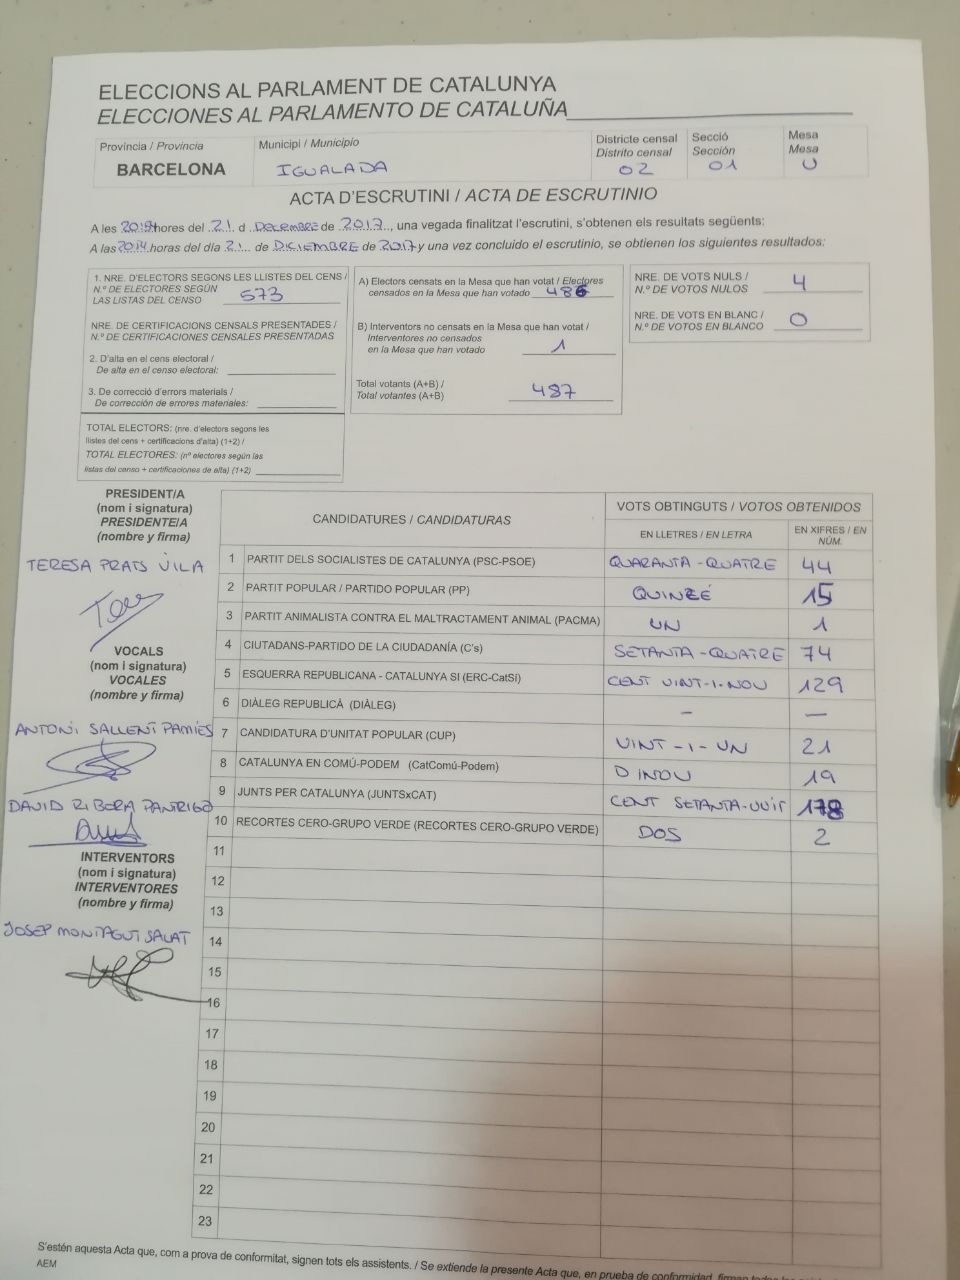 ELECCIONS AL PARLAMENT DE CATALUNYA
ELECCIONES AL PARLAMENTO DE CATALUÑA
Província / Provincia
BARCELONA
Municipi / Municipio
IGUALADA
Districte censal
Distrito censal
02
Secció
Sección
01
Mesa
Mesa
U
ACTA D'ESCRUTINI / ACTA DE ESCRUTINIO
A les hores del 21 d DECEMBRE de 2017, una vegada finalitzat l'escrutini, s'obtenen els resultats següents:
A las horas del día 21 de DICIEMBRE de 2017 y una vez concluido el escrutinio, se obtienen los siguientes resultados:
1. NRE. D'ELECTORS SEGONS LES LLISTES DEL CENS /
N.º DE ELECTORES SEGÚN
LAS LISTAS DEL CENSO 573
NRE. DE CERTIFICACIONS CENSALS PRESENTADES /
N.º DE CERTIFICACIONES CENSALES PRESENTADAS
2. D'alta en el cens electoral /
De alta en el censo electoral:
3. De correcció d'errors materials /
De corrección de errores materiales:
TOTAL ELECTORS: (nre. d'electors segons les
llistes del cens + certificacions d'alta) (1+2) /
TOTAL ELECTORES: (nº electores según las
listas del censo + certificaciones de alta) (1+2)
A) Electors censats en la Mesa que han votat / Electores
censados en la Mesa que han votado 486
B) Interventors no censats en la Mesa que han votat /
Interventores no censados
en la Mesa que han votado 1
Total votants (A+B) /
Total votantes (A+B) 487
NRE. DE VOTS NULS /
N.º DE VOTOS NULOS 4
NRE. DE VOTS EN BLANC /
N.º DE VOTOS EN BLANCO 0
PRESIDENT/A
(nom i signatura)
PRESIDENTE/A
(nombre y firma)
TERESA PRATS VILA
VOCALS
(nom i signatura)
VOCALES
(nombre y firma)
ANTONI SALLENT PAMIES
DAVID RIBERA PANTRIGO
INTERVENTORS
(nom i signatura)
INTERVENTORES
(nombre y firma)
JOSEP MONTAGUT SALAT
CANDIDATURES / CANDIDATURAS
VOTS OBTINGUTS / VOTOS OBTENIDOS
EN LLETRES / EN LETRA
EN XIFRES / EN
NÚM.
1 PARTIT DELS SOCIALISTES DE CATALUNYA (PSC-PSOE) QUARANTA-QUATRE 44
2 PARTIT POPULAR / PARTIDO POPULAR (PP) QUINZE 15
3 PARTIT ANIMALISTA CONTRA EL MALTRACTAMENT ANIMAL (PACMA) UN 1
4 CIUTADANS-PARTIDO DE LA CIUDADANÍA (C's) SETANTA-QUATRE 74
5 ESQUERRA REPUBLICANA - CATALUNYA SI (ERC-CatSí) CENT VINT-I-NOU 129
6 DIÀLEG REPUBLICÀ (DIÀLEG) - —
7 CANDIDATURA D'UNITAT POPULAR (CUP) VINT-I-UN 21
8 CATALUNYA EN COMÚ-PODEM (CatComú-Podem) DINOU 19
9 JUNTS PER CATALUNYA (JUNTSxCAT) CENT SETANTA-VUIT 178
10 RECORTES CERO-GRUPO VERDE (RECORTES CERO-GRUPO VERDE) DOS 2
11
12
13
14
15
16
17
18
19
20
21
22
23
S'estén aquesta Acta que, com a prova de conformitat, signen tots els assistents. / Se extiende la presente Acta que, en prueba de conformidad, firman
AEM